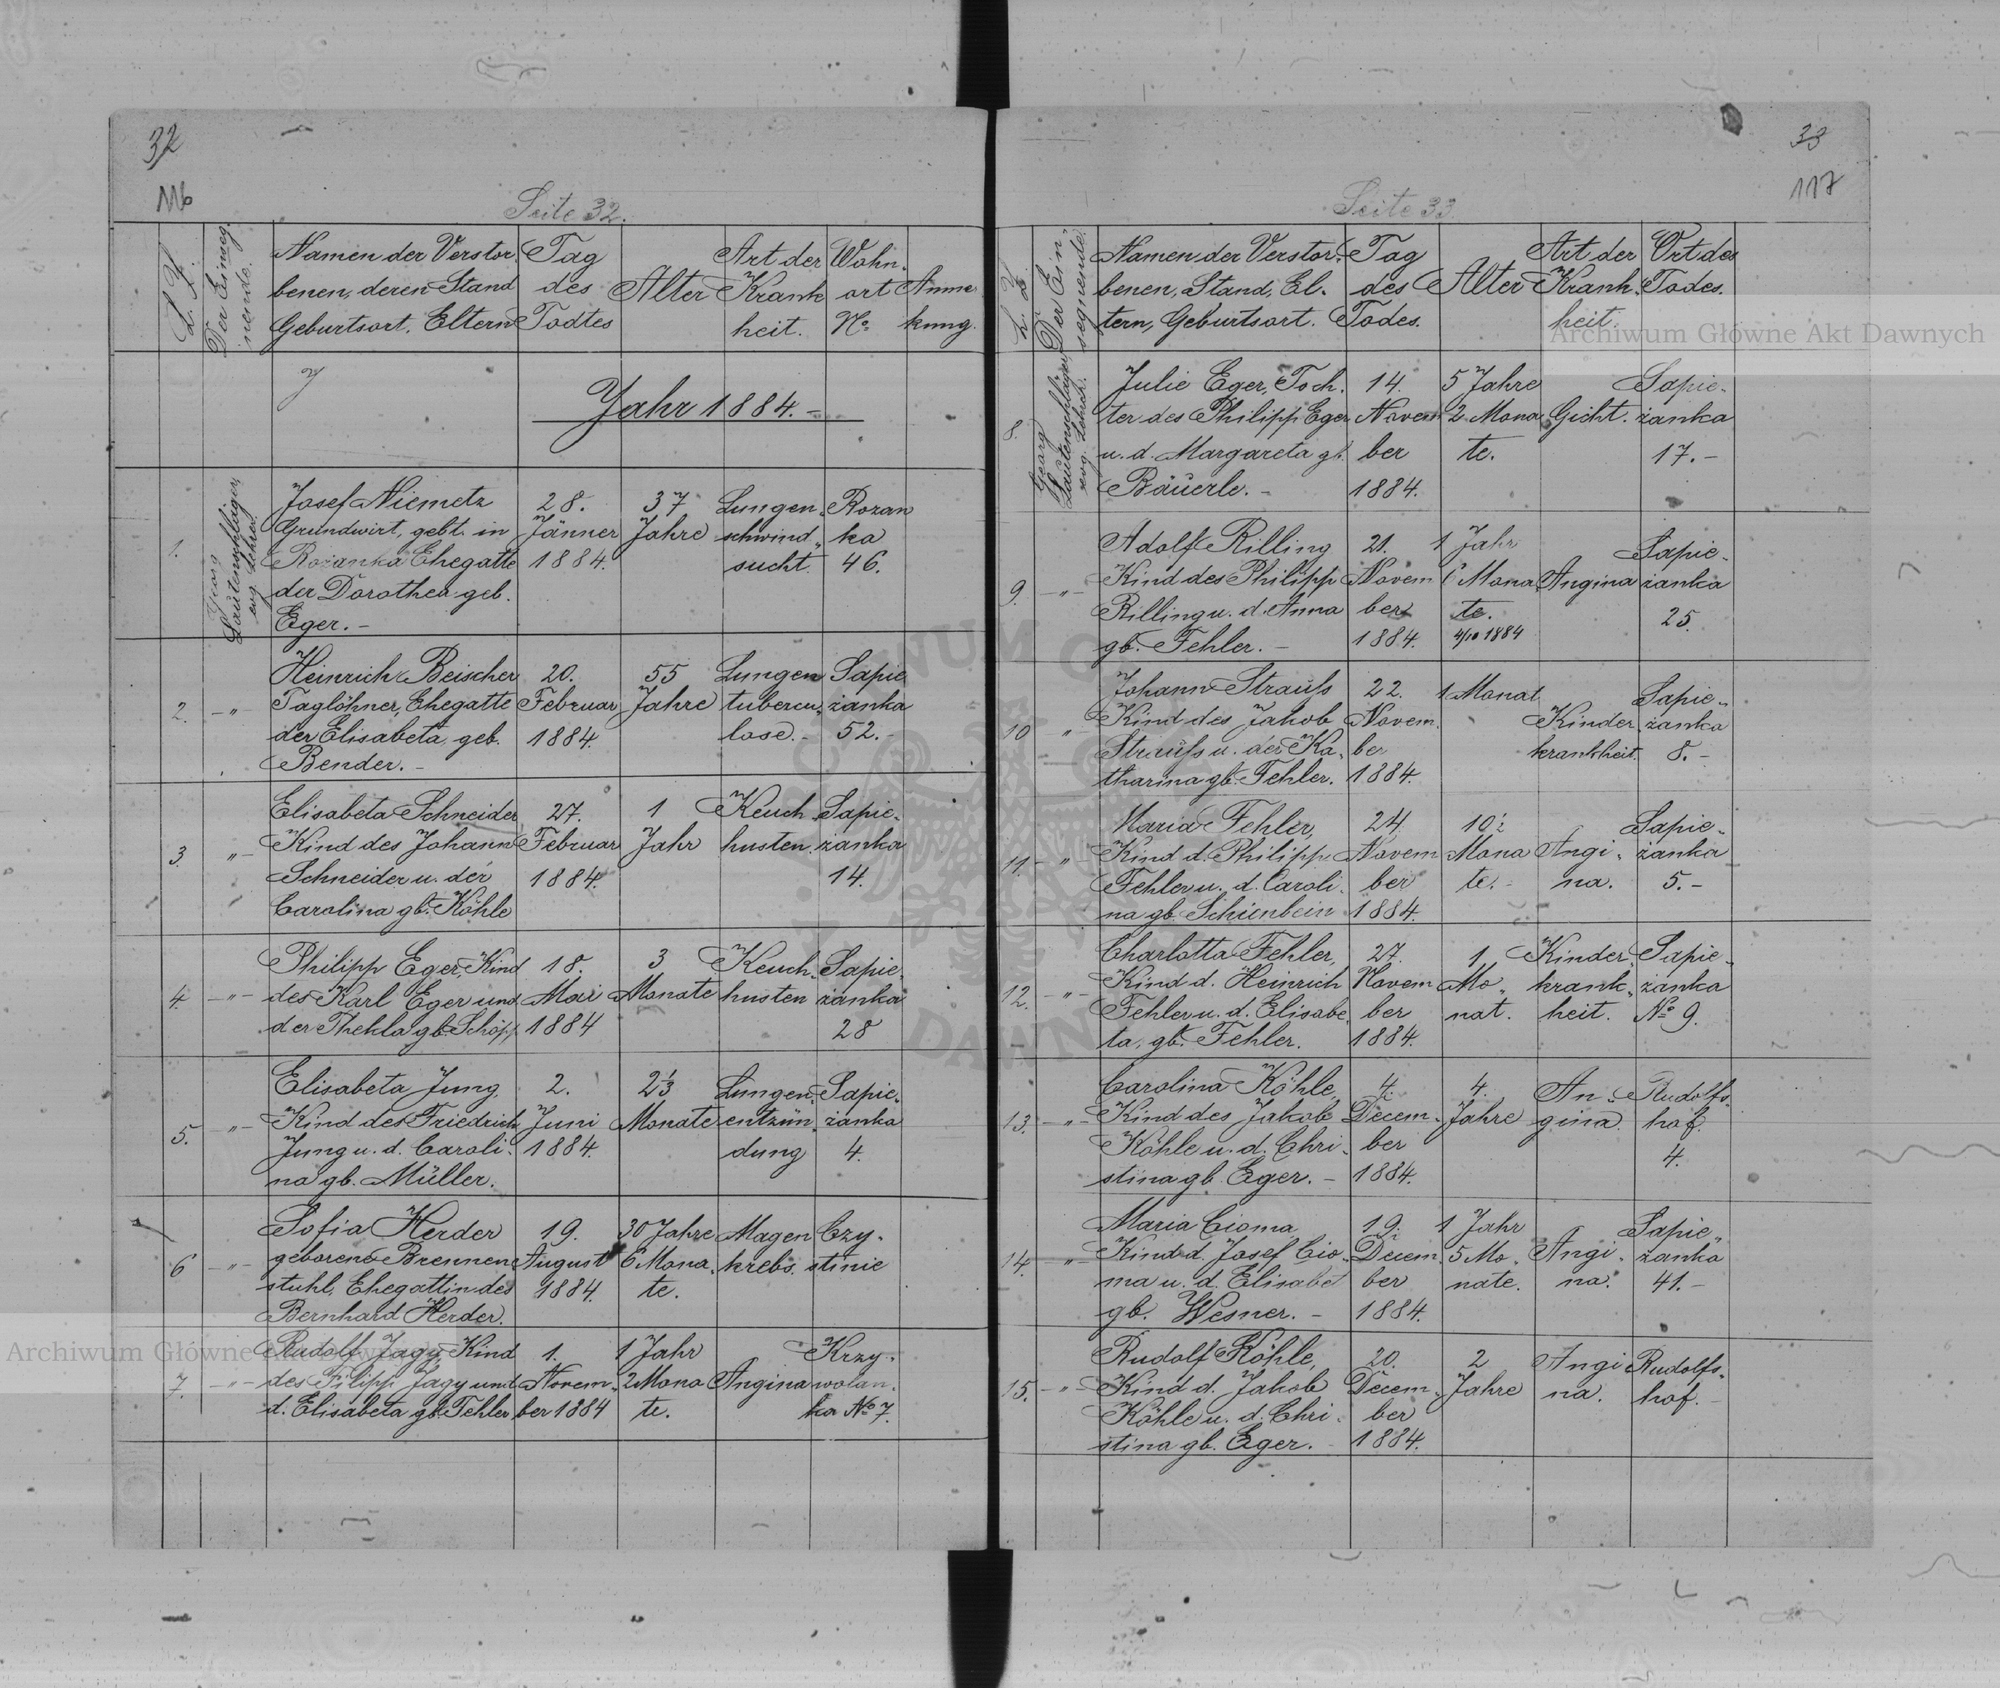 32
116
Seite 32.
L. Z.
Der Einseg-
nende.
Namen der Verstor-
benen, deren Stand
Geburtsort. Eltern
Tag
des
Todtes
Alter
Art der
Krank
heit.
Wohn-
ort
No
Anme
kung.
Jahr 1884.-
1.
Georg
Lautenschläger,
evg. Lehrer.
Josef Niemetz
Grundwirt, gebt. in
Rożanka Ehegatte
der Dorothea geb.
Eger.-
28.
Jänner
1884.
37
Jahre
Lungen-
schwind-
sucht.
Rozan
ka
46.
2.
-"-
Heinrich Beischer
Taglöhner, Ehegatte
der Elisabeta, geb.
Bender.-
20.
Februar
1884.
55
Jahre
Lungen
tubercu-
lose.-
Sapie
żanka
52.-
3.
"-
Elisabeta Schneider
Kind des Johann
Schneider u. der
Carolina gb. Köhle
27.
Februar
1884.
1
Jahr
Keuch-
husten.
Sapie-
żanka
14.
4.
-"-
Philipp Eger, Kind
des Karl Eger und
der Thekla gb. Schöpp
18.
Mai
1884
3
Monate
Keuch-
husten
Sapie-
żanka
28
5.
"-
Elisabeta Jung,
Kind des Friedrich
Jung u. d. Caroli-
na gb. Müller.
2.
Juni
1884.
2 1/3
Monate
Lungen-
entzün-
dung
Sapie-
żanka
4.
6
-"-
Sofia Herder
geborene Brennen
stuhl, Ehegattin des
Bernhard Herder.
19.
August
1884.
30 Jahre
6 Mona-
te.
Magen
krebs.
Czy-
stinie
7.
-"-
Rudolf Jagy, Kind
des Filipp Jagy und
d. Elisabeta gb. Fehler
1.
Novem-
ber 1884
1 Jahr
2 Mona
te.
Angina
Krzy-
wolan-
ka No 7.
33
117
Seite 33
L. Z.
Der Ein-
segnende.
Namen der Verstor-
benen, Stand, El-
tern, Geburtsort.
Tag
des
Todes.
Alter
Art der
Krank-
heit.
Ort des
Todes.
8.
Georg
Lautenschläger,
evg. Lehrer.
Julie Eger, Toch-
ter des Philipp Eger
u. d. Margareta gb.
Bäuerle.-
14.
Novem
ber
1884.
5 Jahre
2 Mona
te.
Gicht.
Sapie-
żanka
17.-
9.
-"-
Adolf Rilling
Kind des Philipp
Rilling u. d. Anna
gb. Fehler.-
21.
Novem
ber
1884.
1 Jahr
6 Mona
te.
4/10 1884
Angina
Sapie-
żanka
25.
10
"
Johann Strauss
Kind des Jakob
Strauss u. der Ka-
tharina gb. Fehler.
22.
Novem.
ber
1884.
1 Monat
Kinder-
krankheit.
Sapie-
żanka
8.-
11.
-"-
Maria Fehler,
Kind d. Philipp
Fehler u. d. Caroli-
na gb. Schienbein
24.
Novem
ber
1884.
10 1/2
Mona
te.-
Angi-
na.
Sapie-
żanka
5.-
12.
-"-
Charlotta Fehler,
Kind d. Heinrich
Fehler u. d. Elisabe-
ta, gb. Fehler.
27.
Novem
ber
1884.
1
Mo-
nat.
Kinder-
krank-
heit.
Sapie-
żanka
No 9.
13.
-"-
Carolina Köhle,
Kind des Jakob
Köhle u. d. Chri-
stina gb. Eger.-
4.
Decem-
ber
1884.
4.
Jahre
An-
gina.
Rudolfs-
hof.
4.
14.
-"-
Maria Cioma
Kind d. Josef Cio-
ma u. d. Elisabet
gb. Wesner.-
19.
Decem
ber
1884.
1 Jahr
5 Mo-
nate.
Angi-
na.
Sapie-
żanka
41.-
15.
-"-
Rudolf Köhle,
Kind d. Jakob
Köhle u. d. Chri-
stina gb. Eger.-
20.
Decem-
ber
1884.
2
Jahre
Angi
na.
Rudolfs-
hof.-
Archiwum Główne Akt Dawnych